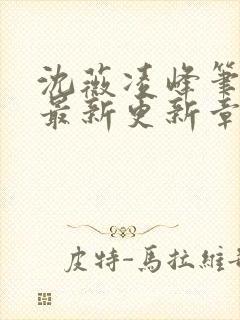 沈薇凌峰筆
最新更新章
皮特-馬拉維